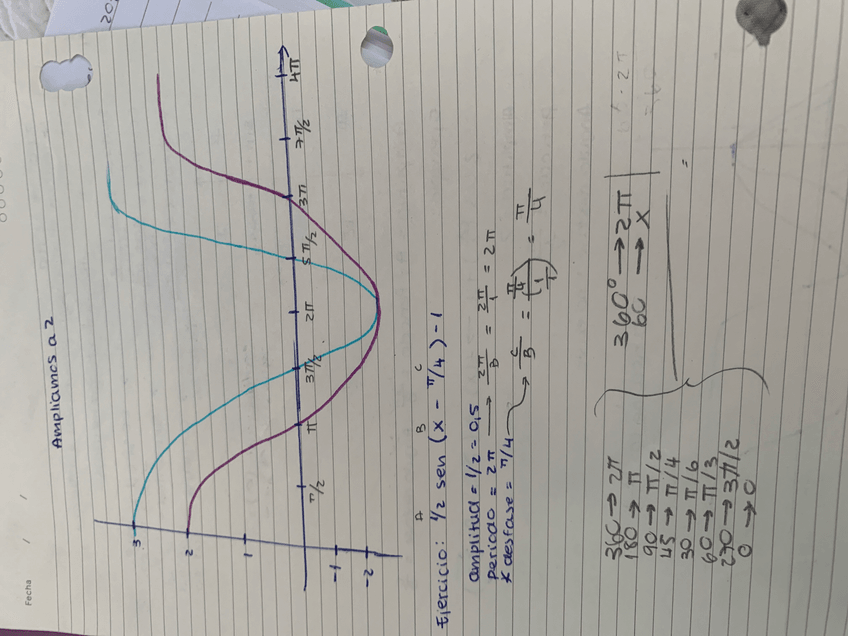 Fecha / /
20
Ampliamos a 2
3
2
1
-1
-2
π/2
π
3π/2
2π
5π/2
3π
7π/2
4π
A B C
Ejercicio: 1/2 sen (x - π/4) - 1
amplitud = 1/2 = 0,5
periodo = 2π → 2π/B = 2π/1 = 2π
* desfase = π/4 → C/B = (π/4)/(1/1) = π/4
360 → 2π
180 → π
90 → π/2
45 → π/4
30 → π/6
60 → π/3
270 → 3π/2
0 → 0
360° → 2π
60 → x
=